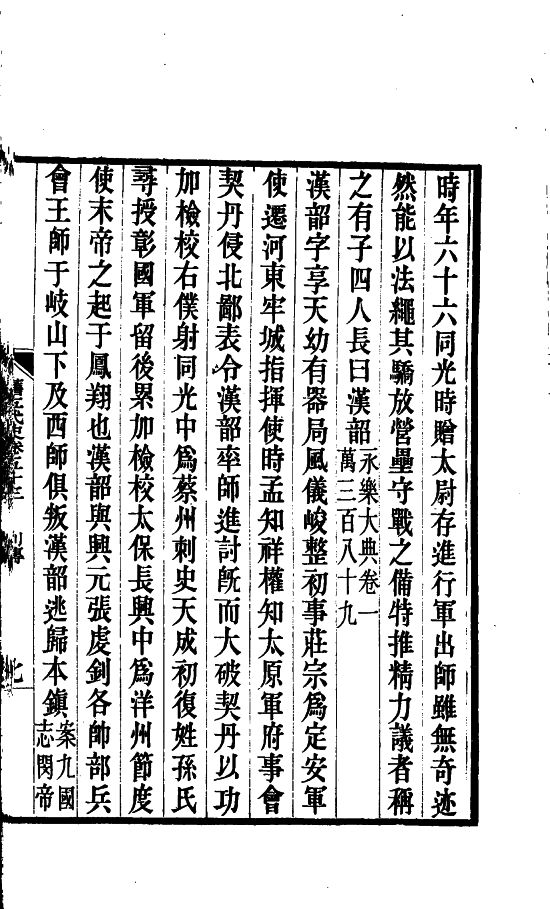 時年六十六同光時贈太尉存進行軍出師雖無奇迹
然能以法繩其驕放營壘守戰之備特推精力議者稱
之有子四人長曰漢韶永樂大典卷一
萬三百八十九
漢韶字享天幼有器局風儀峻整初事莊宗爲定安軍
使遷河東牢城指揮使時孟知祥權知太原軍府事會
契丹侵北鄙表令漢韶率師進討旣而大破契丹以功
加檢校右僕射同光中爲蔡州刺史天成初復姓孫氏
尋授彰國軍留後累加檢校太保長興中爲洋州節度
使末帝之起于鳳翔也漢韶與興元張虔釗各帥部兵
會王師于岐山下及西師俱叛漢韶逃歸本鎮案九國
志閔帝